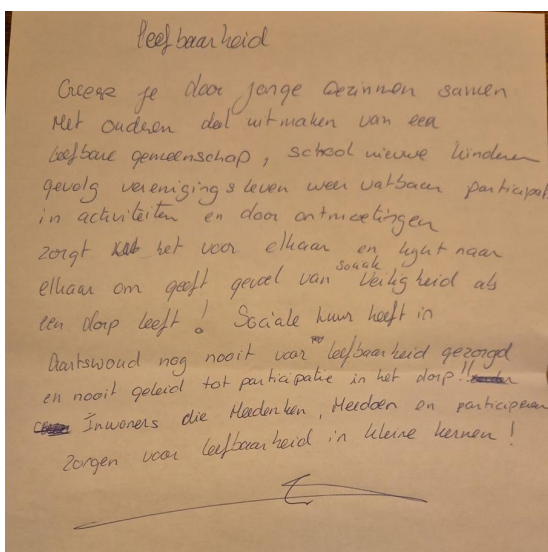 leefbaarheid
Creeer je door jonge gezinnen samen
met ouderen deel uitmaken van een
leefbare gemeenschap, school nieuwe kinderen
gevolg verenigingsleven weer vatbaar participat
in activiteiten en door ontmoetingen
zorgt het voor elkaar en kijkt naar
elkaar om geeft gevoel van sociale veiligheid als
een dorp leeft! Sociale huur heeft in
Aartswoud nog nooit voor leefbaarheid gezorgd
en nooit geleid tot participatie in het dorp!!
Inwoners die Meedenken, Meedoen en participeren
zorgen voor leefbaarheid in kleine kernen!